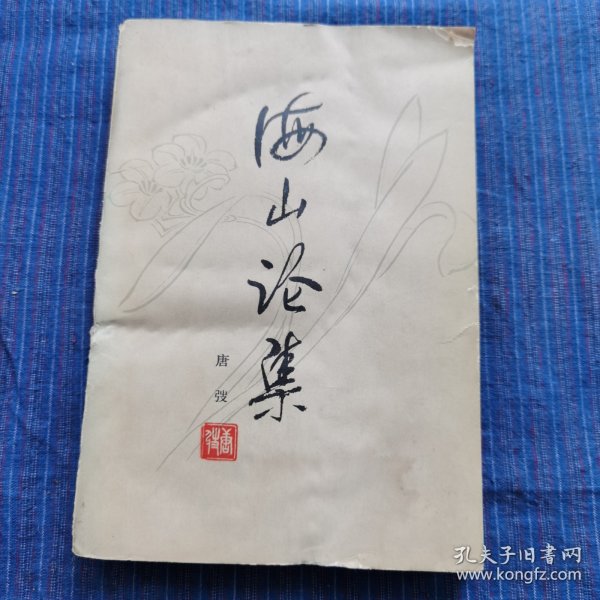 海山论集
唐弢
唐弢
孔夫子旧书网
www.kongfz.com